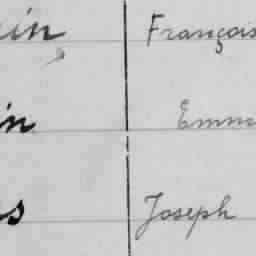 in François
in Emm
s Joseph